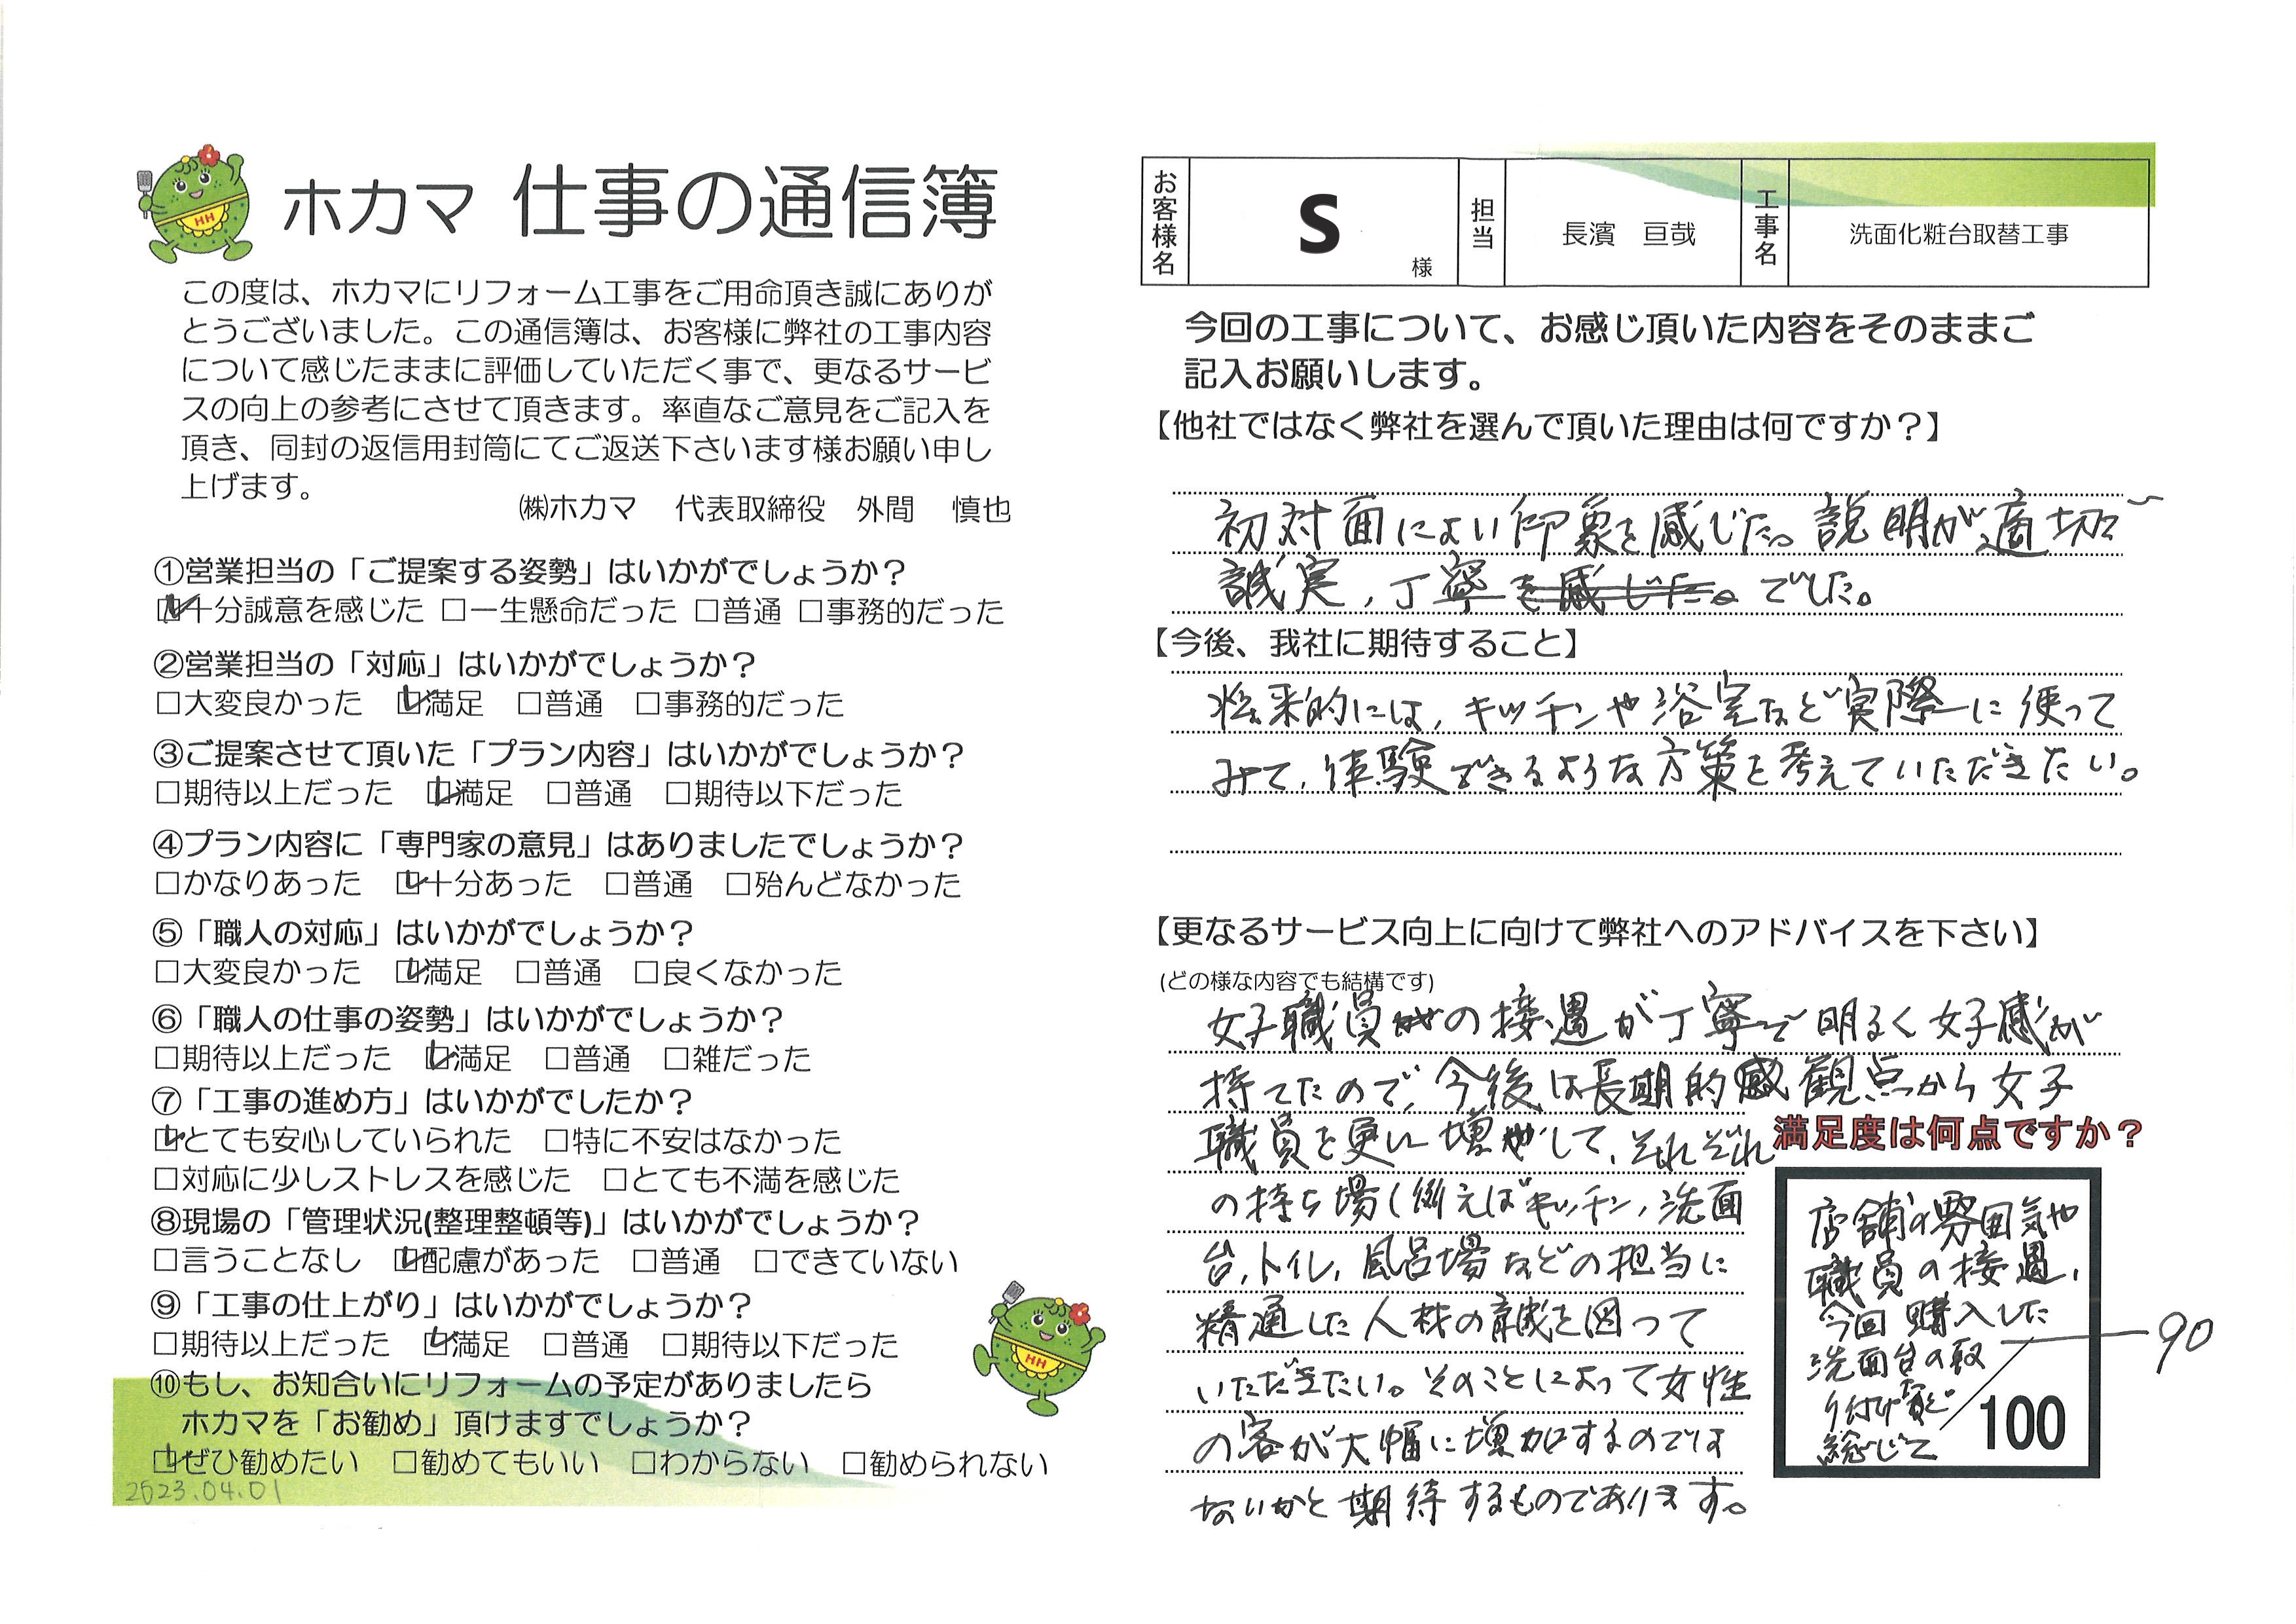 ホカマ 仕事の通信簿
この度は、ホカマにリフォーム工事をご用命頂き誠にありが
とうございました。この通信簿は、お客様に弊社の工事内容
について感じたままに評価していただく事で、更なるサービ
スの向上の参考にさせて頂きます。率直なご意見をご記入を
頂き、同封の返信用封筒にてご返送下さいます様お願い申し
上げます。
㈱ホカマ 代表取締役 外間 慎也
①営業担当の「ご提案する姿勢」はいかがでしょうか？
☑十分誠意を感じた □一生懸命だった □普通 □事務的だった
②営業担当の「対応」はいかがでしょうか？
□大変良かった ☑満足 □普通 □事務的だった
③ご提案させて頂いた「プラン内容」はいかがでしょうか？
□期待以上だった ☑満足 □普通 □期待以下だった
④プラン内容に「専門家の意見」はありましたでしょうか？
□かなりあった ☑十分あった □普通 □殆んどなかった
⑤「職人の対応」はいかがでしょうか？
□大変良かった ☑満足 □普通 □良くなかった
⑥「職人の仕事の姿勢」はいかがでしょうか？
□期待以上だった ☑満足 □普通 □雑だった
⑦「工事の進め方」はいかがでしたか？
☑とても安心していられた □特に不安はなかった
□対応に少しストレスを感じた □とても不満を感じた
⑧現場の「管理状況(整理整頓等)」はいかがでしょうか？
□言うことなし ☑配慮があった □普通 □できていない
⑨「工事の仕上がり」はいかがでしょうか？
□期待以上だった ☑満足 □普通 □期待以下だった
⑩もし、お知合いにリフォームの予定がありましたら
ホカマを「お勧め」頂けますでしょうか？
☑ぜひ勧めたい □勧めてもいい □わからない □勧められない
2023.04.01
お客様名 S 様 担当 長濱 亘哉 工事名 洗面化粧台取替工事
今回の工事について、お感じ頂いた内容をそのままご
記入お願いします。
【他社ではなく弊社を選んで頂いた理由は何ですか？】
初対面によい印象を感じた。説明が適切で
誠実，丁寧を感じた。でした。
【今後、我社に期待すること】
将来的には，キッチンや浴室など実際に使って
みて，体験できるような方策を考えていただきたい。
【更なるサービス向上に向けて弊社へのアドバイスを下さい】
(どの様な内容でも結構です)
女子職員の接遇が丁寧で明るく好感が
持てたので，今後は長期的観点から女子
職員を更に増やして，それぞれ
の持ち場（例えばキッチン，洗面
台，トイレ，風呂場などの担当に
精通した人材の育成を図って
いただきたい。そのことによって女性
の客が大幅に増加するのでは
ないかと期待するものであります。
満足度は何点ですか？
店舗の雰囲気や
職員の接遇，
今回購入した
洗面台の取
り付けなど
総じて
90
100